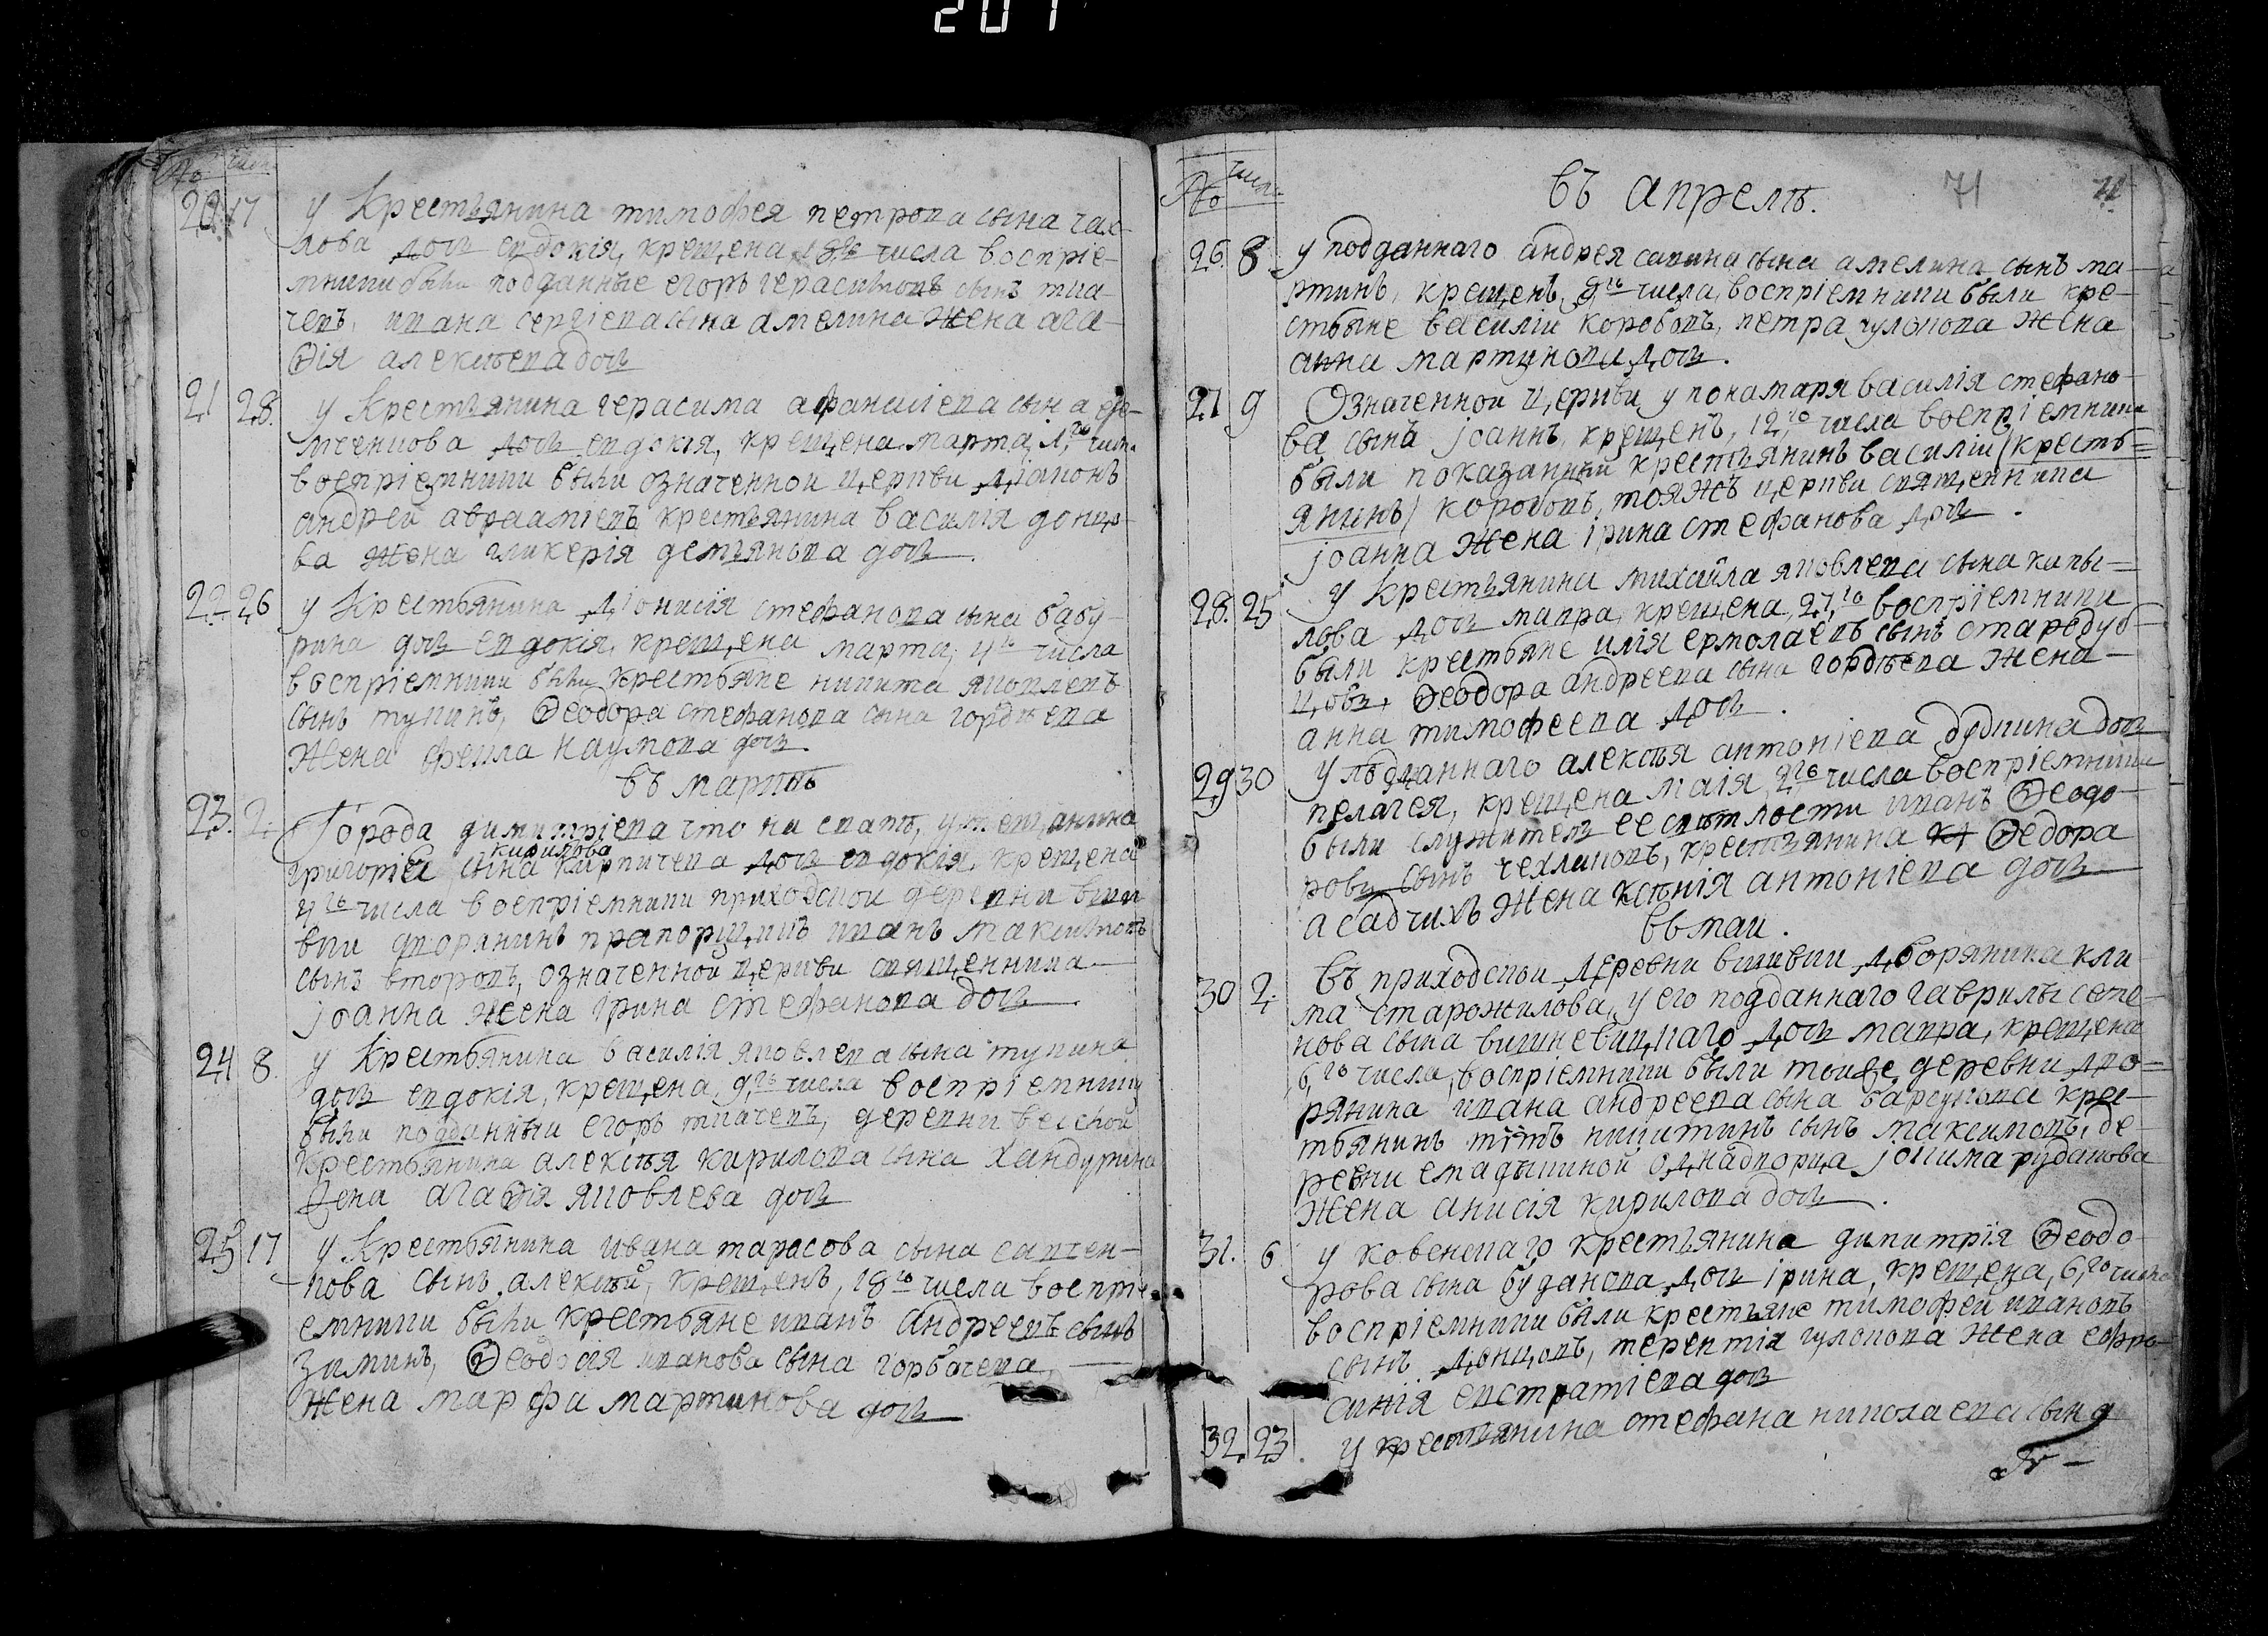 201
№ числ
20. 17 у Крестьянина тимофея петрова сына чах-
лова дочь евдокія, крещена 18го числа воспріе-
мники были подданные егоръ герасимовъ сынъ тка-
чевъ, ивана сергіева сына амелина жена ага-
ѳія алексѣева дочь
21 28. у Крестьянина герасима афанасіева сына де-
мченкова дочь евдокія, крещена марта 1го числ.
воспріемники были означенной церкви діаконъ
андрей авраамієвъ крестьянина василія донцо-
ва жена гликерія демьянова дочь
22 26 у Крестьянина діонисія стефанова сына бабу-
рина дочь евдокія, крещена марта, 4го числа
воспріемники были крестьяне никита яковлевъ
сынъ тупинъ, Ѳеодора стефанова сына гордѣева
жена фекла наумова дочь.
въ мартѣ
23. 2. Города димитріева что на свапѣ, у мещанина
кирилова
григорія сына кирпичева дочь евдокія, крещена
4го числа воспріемники приходской деревни вши
вки дворянинъ прапорщикъ иванъ максимовъ
сынъ второвъ, означенной церкви священника
іоанна жена ірина стефанова дочь
24 8. у Крестьянина василія яковлева сына тупина
дочь евдокія, крещена, 9го числа воспріемники
были подданный егоръ ткачевъ, деревни
крестьянина алексѣя кирилова сына хандурина
жена агаѳія яковлева дочь
25 17 у Крестьянина ивана тарасова сына савчен-
кова сынъ алексѣй, крещенъ, 18го числа воспріе-
емники были крестьяне иванъ андреевъ сынъ
зиминъ, Ѳеодосія иванова сына горбачева
жена марфа мартинова дочь
№ числ.
въ апрелѣ. 71
26. 8 у подданнаго андрея савина сына амелина сынъ ма-
ртинъ, крещенъ, 9го числа, воспріемники были кре-
стьяне василій коробовъ, петра чулокова жена
анна мартинова дочь.
27 9 Означенной церкви у понамаря василія стефано-
ва сынъ іоаннъ, крещенъ, 12го числа воспріемники
были показанный крестьянинъ василій /кресть=
янинъ/ коробовъ, тояжъ церкви священника
іоанна жена ірина стефанова дочь.
28. 25 у Крестьянина михайла яковлева сына капы=
лова дочь мавра, крещена, 27го воспріемники
были крестьяне илія ермолаевъ сынъ стародуб-
цовъ, Ѳеодора андреева сына гордѣева жена
анна тимофеева дочь.
29 30 у подданнаго алексѣя антоніева дудкина дочь
пелагея, крещена маія, 2го числа воспріемники
были служитель ее свѣтлости иванъ Ѳеодо-
ровъ сынъ чехлановъ, крестьянина Ѳедора
асадчихъ жена ксѣнія антоніева дочь
въ маи.
30 2. въ приходской деревни вшивки дворянина кли
ма старожилова, у его подданнаго гаврилы семе-
нова сына вишневицкаго дочь мавра, крещена
6,го числа, воспріемники были тойже деревни дво=
рянина ивана андреева сына барсукова крес-
тьянинъ титъ никитинъ сынъ максимовъ, де-
ревни однадворца іокима рудакова
жена анисія кирилова дочь.
31. 6 у ковенскаго крестьянина димитрія Ѳеодо-
рова сына буданова дочь ірина, крещена, 6,го числа
воспріемники были крестьяне тимофей ивановъ
сынъ донцовъ, терентія чулокова жена ефро-
синія евстратіева дочь
32. 23. у крестьянина стефана николаева сына